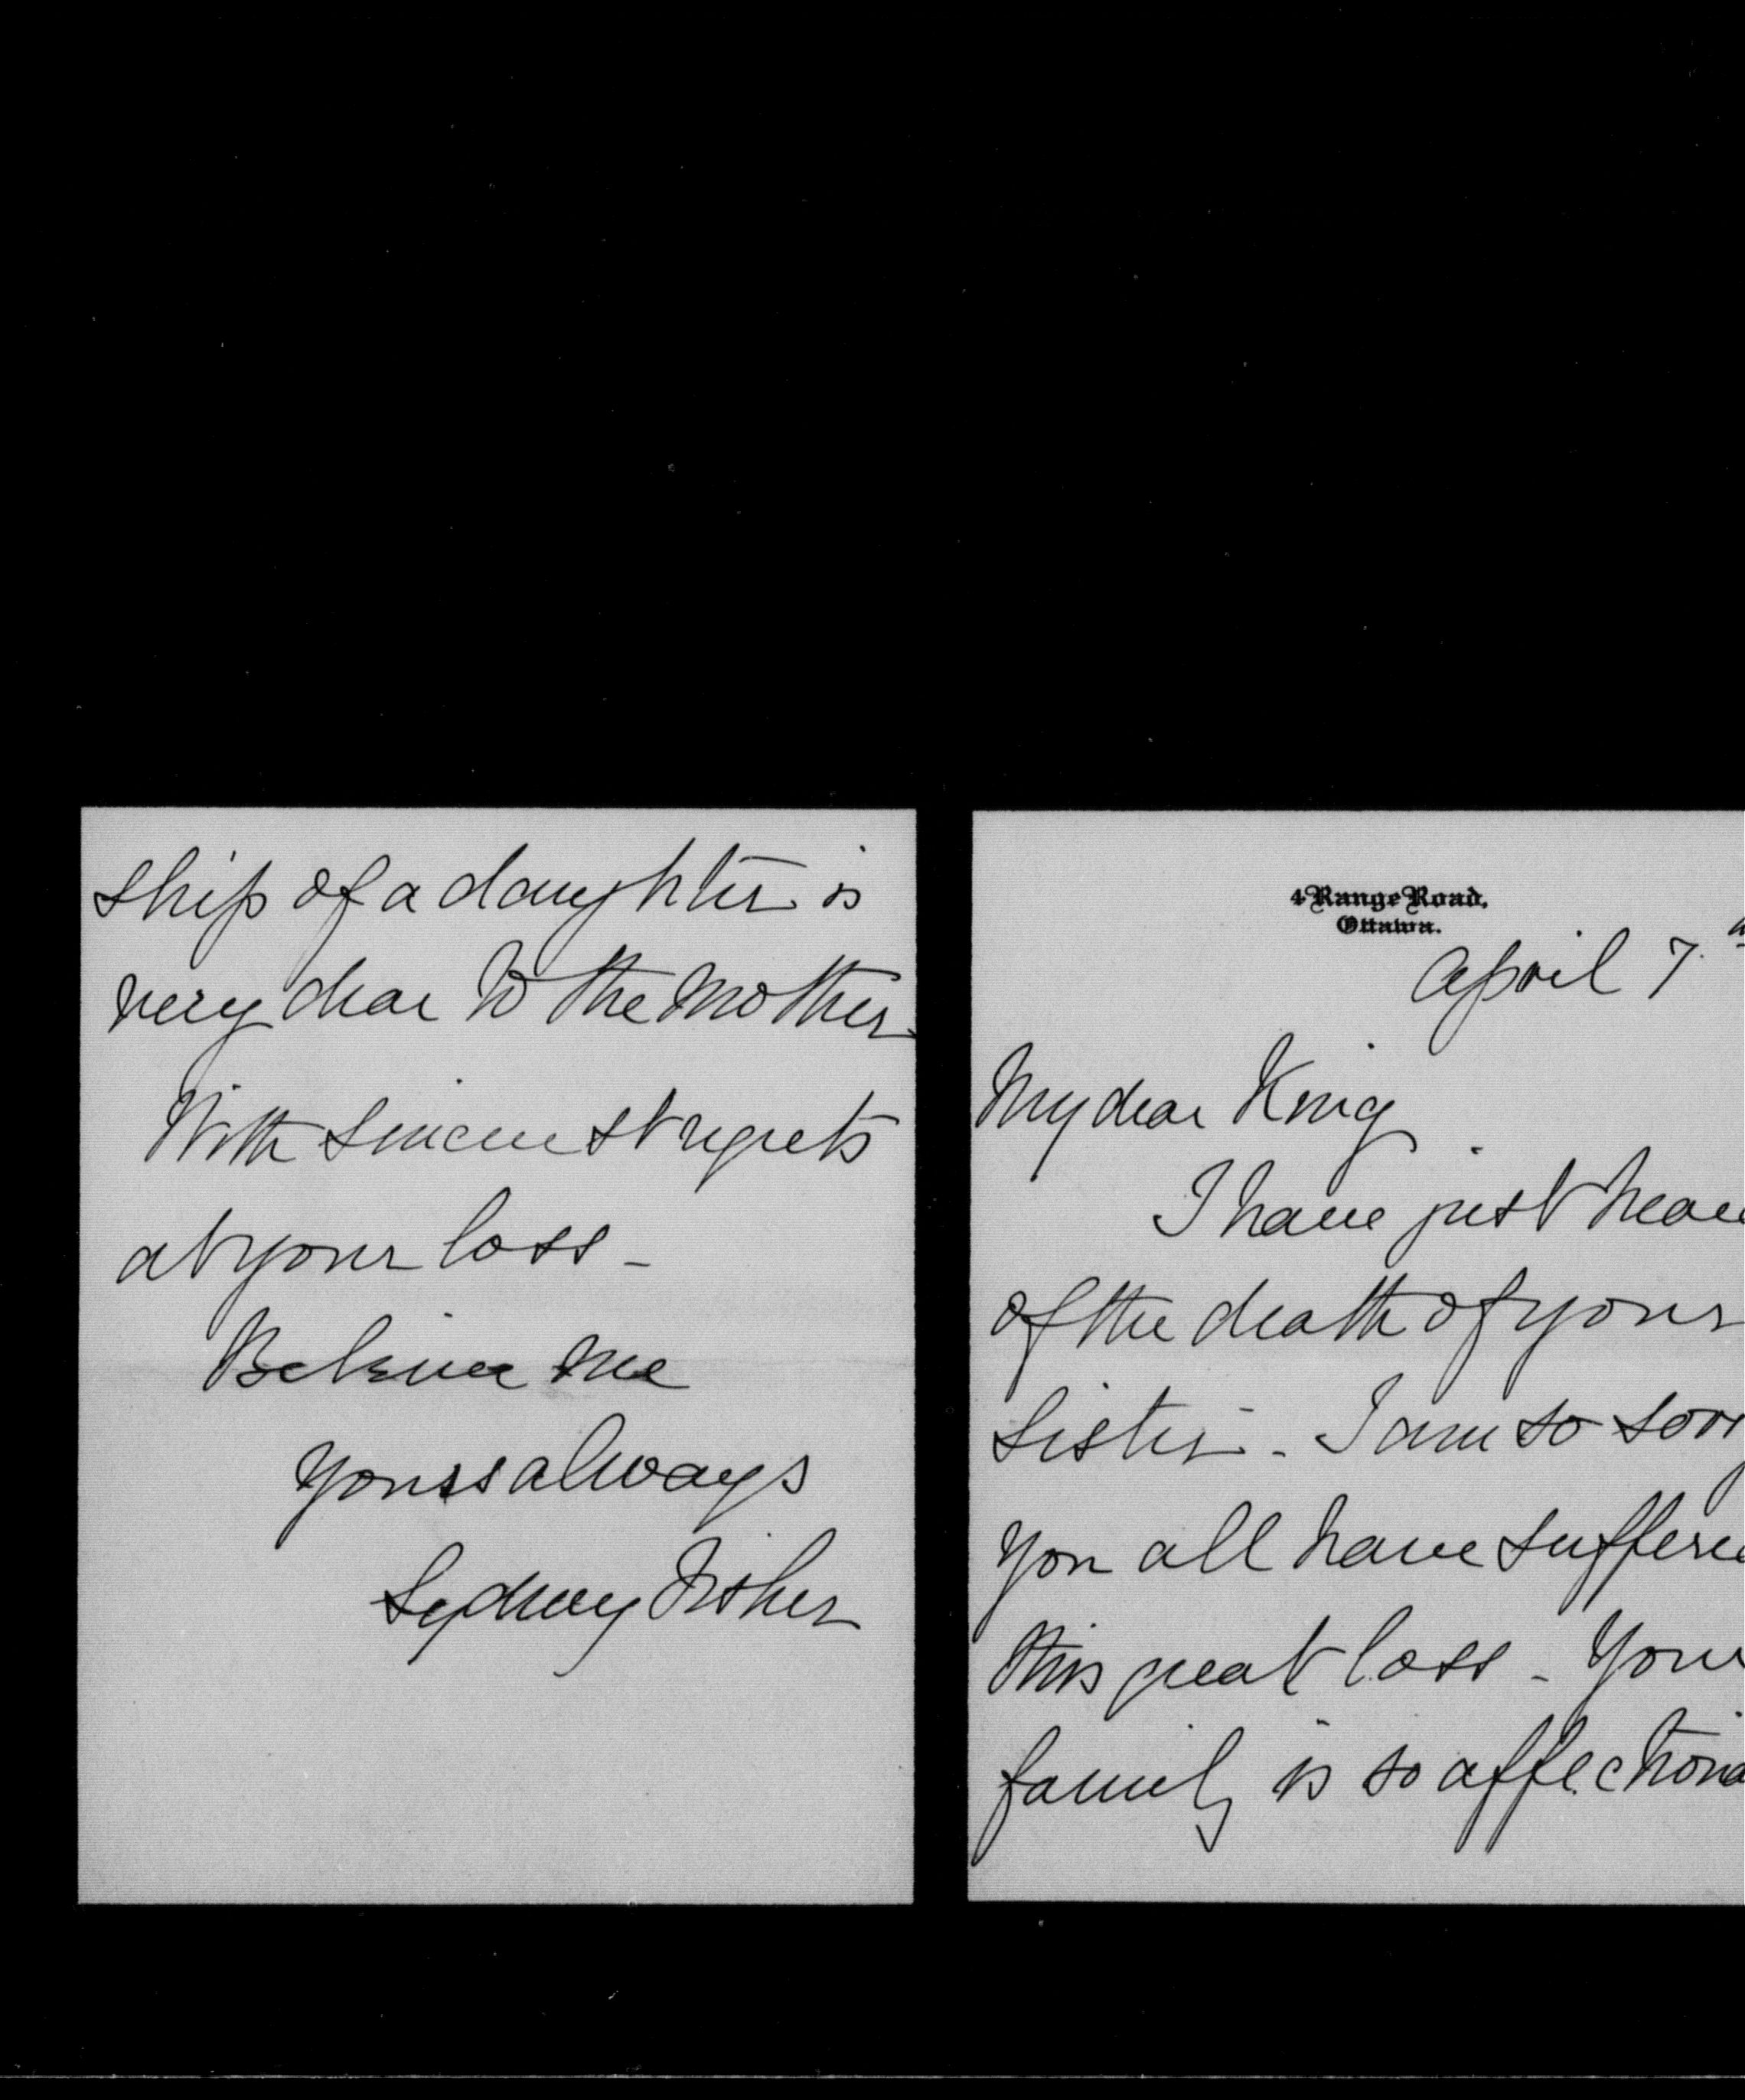 ship of a daughter is
very dear to the mother
With sincerest regrets
at your loss -
Believe me
yours always
Sydney Fisher
4 Range Road,
Ottawa.
April 7.
My dear King
I have just hear
of the death of your
Sister - I am so sorr
you all have suffere
this great loss - Your
family is so affectiona